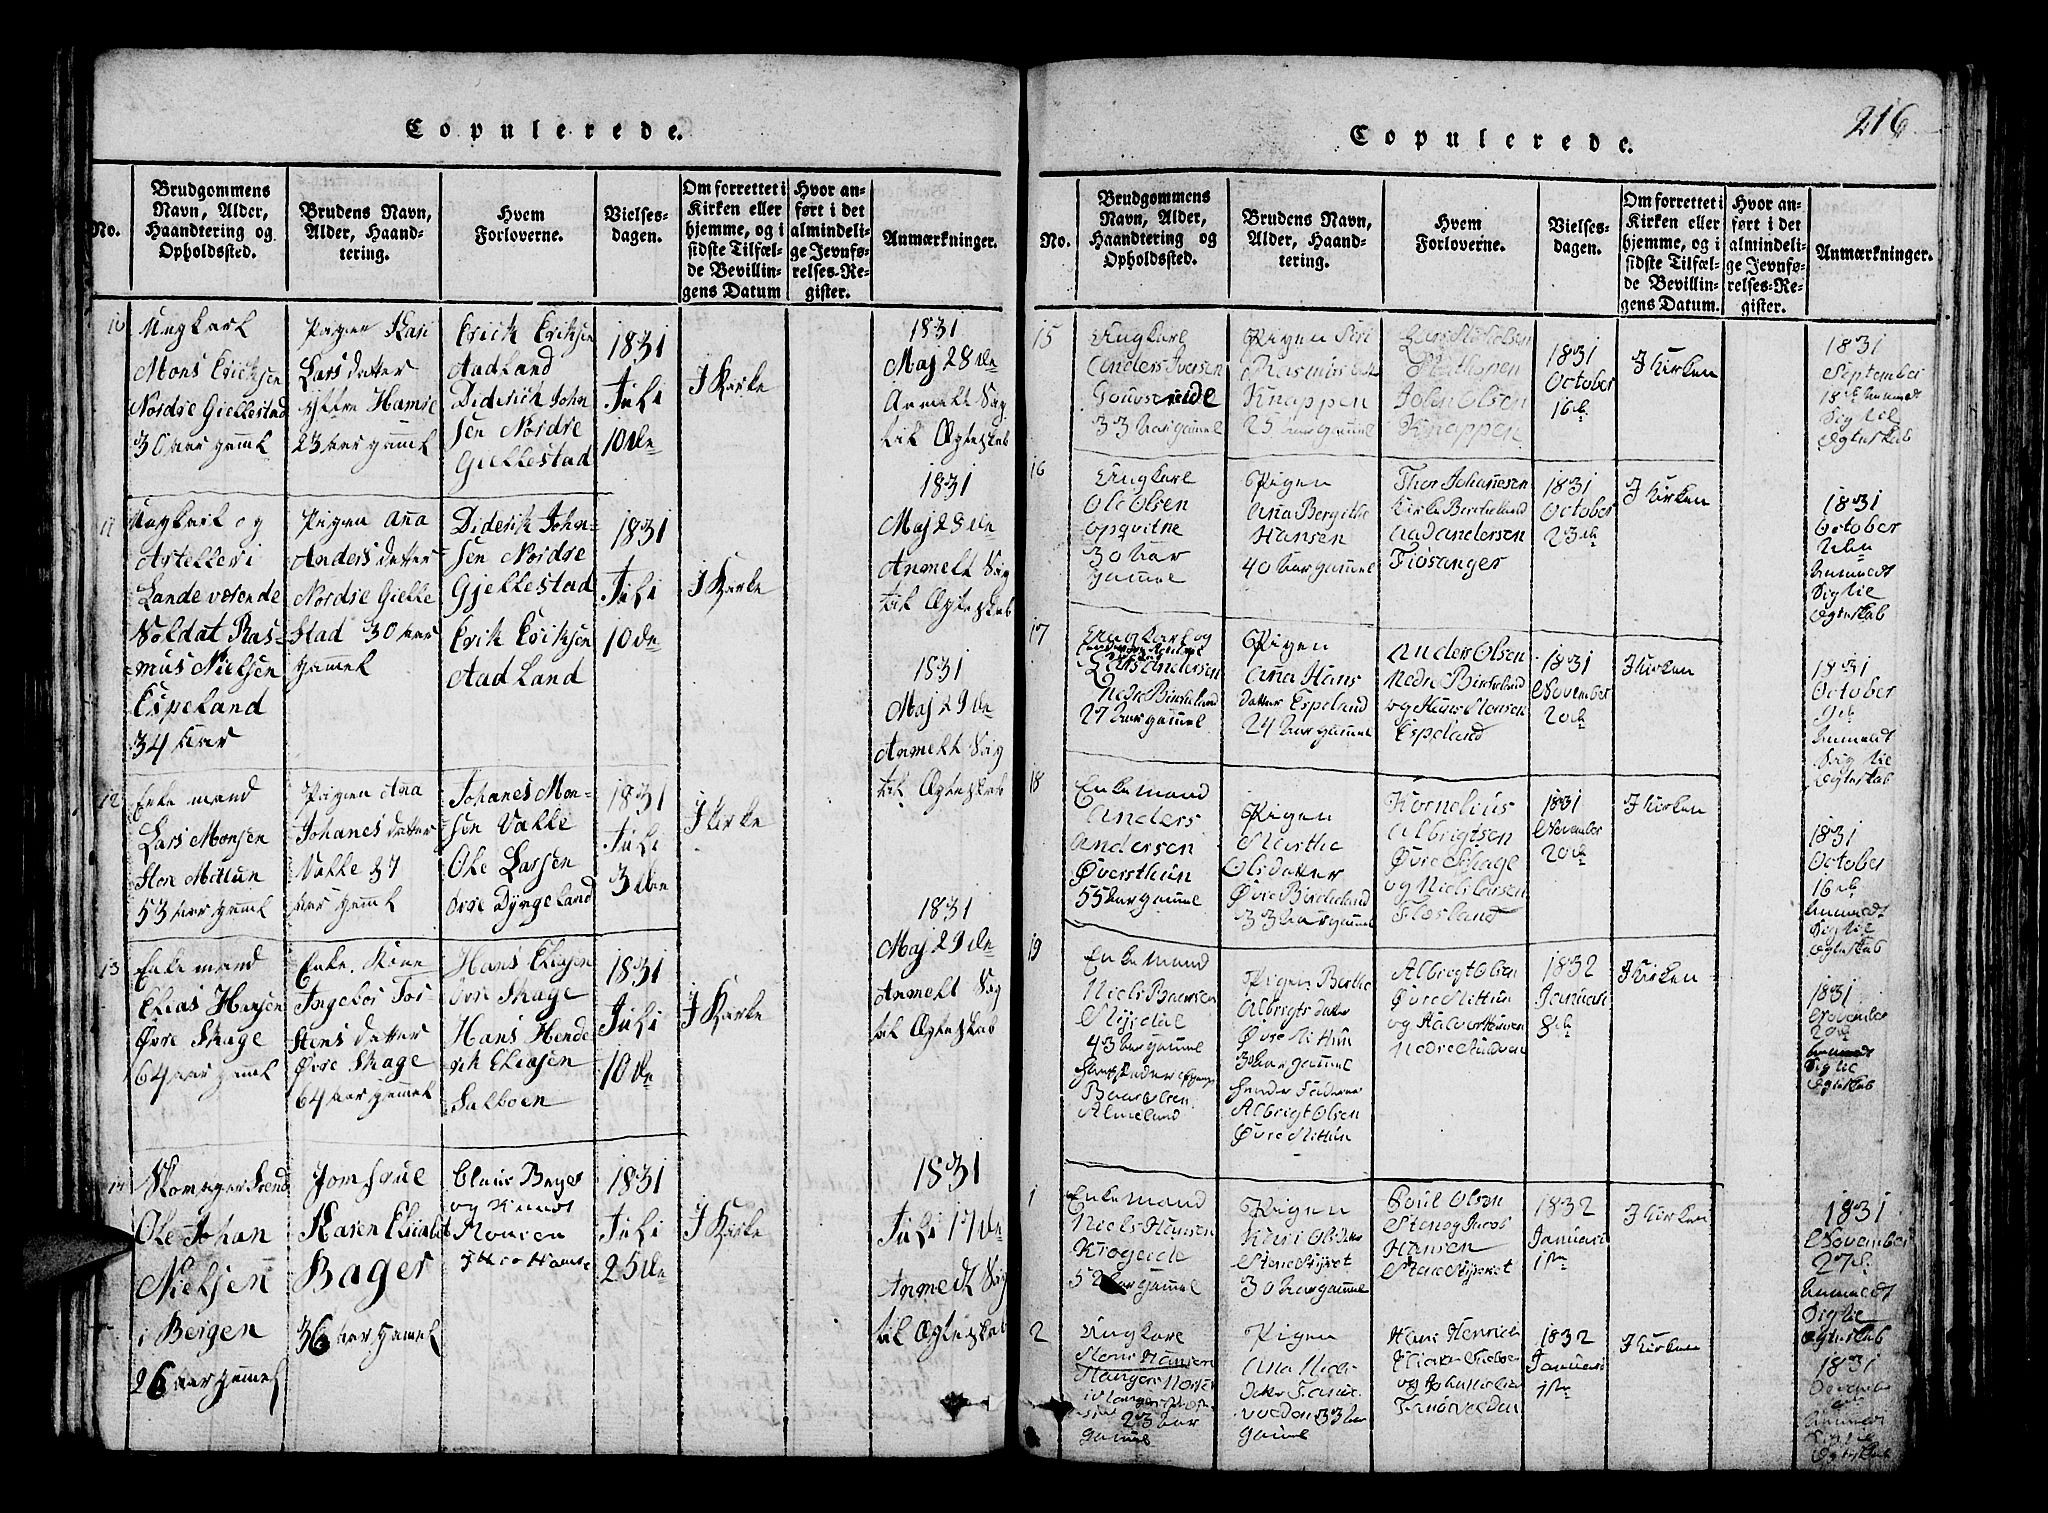 Copulerede.
No.
Brudgommens
Navn, Alder,
Haandtering og
Opholdssted.
Brudens Navn,
Alder, Haand-
tering.
Hvem
Forloverne.
Vielses-
dagen.
Om forrettet i
Kirken eller
hjemme, og i
sidste Tilfæl-
de Bevillin-
gens Datum
Hvor an-
ført i det
almindeli-
ge Jevnfø-
relses-Re-
gister.
Anmærkninger.
10
Ungkarl
Mons Ericksen
Nordre Giellestad
30 aar gamel
Pigen Kari
Lars datter
yttre Hamre
23 aar gamel
Erick Eriksen
Aadland
Diderik John
sen Nordre
Giellestad
1831
Juli
10 de
J Kirke
1831
Maj 28 de
Anmelt Sig
til Ægteskab
11
Ungkarl og
Artelleri
Lande værende
Soldat Ras-
mus Nielsen
Espeland
34 aar
Pigen Ana
Anders datter
Nordre Gielle
stad 30 aar
gamel
Diderik John-
sen Nordre
Gjellestad
Erik Eriksen
Aadland
1831
Juli
10 de
J Kirke
1831
Maj 28 de
Anmelt Sig
til Ægteskab
12
Enke mand
Lars Monsen
Store Mittun
53 aar gamel
Pigen Ana
Johanes datter
Valle 37
aar gamel
Johanes Mon-
sen Valle
Ole Larsen
Øvre Dyngeland
1831
Juli
3 den
J Kirke
1831
Maj 29 de
Anmelt Sig
til Ægteskab
13
Enke mand
Elias Hansen
Øvre Skage
64 aar gamel
Enke Kone
Ingebor Tor
stens datter
Øvre Skage
64 aar gamel
Hans Eliasen
Øvre Skage
Hans Hende
rik Eliasen
Salboen
1831
Juli
10 de
J Kirke
1831
Maj 29 de
Anmelt Sig
til Ægteskab
14
Skomager Svend
Ole Johan
Nielsen
i Bergen
26 aar gamel
Jomfrue
Karen Elisabet
Bager
36 aar gamel
Claus Bager
og Knudt
Monsen
1831
Juli
25 de
J Kirke
1831
Juli 17 de
Anmelt Sig
til Ægteskab
216
Copulerede.
No.
Brudgommens
Navn, Alder,
Haandtering og
Opholdssted.
Brudens Navn,
Alder, Haand-
tering.
Hvem
Forloverne.
Vielses-
dagen.
Om forrettet i
Kirken eller
hjemme, og i
sidste Tilfæl-
de Bevillin-
gens Datum.
Hvor an-
ført i det
almindeli-
ge Jevnfø-
relses-Re-
gister.
Anmærkninger.
15
Ungkarl
Anders Iversen
33 aar gamel
Pigen Siri
Rasmus datter
Knappen
25 aar gamel
Johan Olsen
Knappen
1831
October
16 de
J Kirken
1831
September
18 de Anmeldt
Sig til
Ægteskab
16
Ungkarl
Ole Olsen
Opqvitne
30 aar
gamel
Pigen
Ana Bergithe
Hansen
40 aar gamel
Thor Johanesen
Kirke Bircheland
Aad Andersen
Fiøsanger
1831
October
23 de
J Kirken
1831
October
2 den
Anmeldt
Sig til
Ægteskab
17
Ungkarl og
Lars Andersen
Nedre Bircheland
27 aar gamel
Pigen
Ana Hans
datter Espeland
24 aar gamel
Ander Olsen
Nedre Bircheland
og Hans Monsen
Espeland
1831
November
20 de
J Kirken
1831
October
9 de
Anmeldt
Sig til
Ægteskab
18
Enke mand
Anders
Andersen
Øversthun
55 aar gamel
Pigen
Marthe
Olsdatter
Øvre Bircheland
33 aar gamel
Kornelius
Albrigtsen
Øvre Skage
og Niels Larsen
Flesland
1831
November
20 de
J Kirken
1831
October
16 de
Anmeldt
Sig til
Ægteskab
19
Enke mand
Niels Baarsen
43 aar gamel
Baar Olsen
Almeland
Pigen Berthe
Albrigts datter
Øvre Mittun
30 aar gamel
hendes Fader er
Albrigt Olsen
Øvre Mittun
Albrigt Olsen
Øvre Mittun
og Halvor Hansen
1832
Januari
8 de
J Kirken
1831
November
20 de
Anmeldt
Sig til
Ægteskab
1
Enke mand
Niels Hansen
Krogeide
52 aar gamel
Pigen
Kari Olsdatter
30 aar gamel
Poul Olsen
Stend og Jacob
Hansen
1832
Januari
1 ste
J Kirken
1831
November
27 de
Anmeldt
Sig til
Ægteskab
2
Ungkarl
Mons Hansen
23 aar
gamel
Pigen
Ana Niels
datter
33 aar
gamel
Hans Henrich
1832
Januari
1 ste
J Kirken
1831
December
Anmeldt
Sig til
Ægteskab